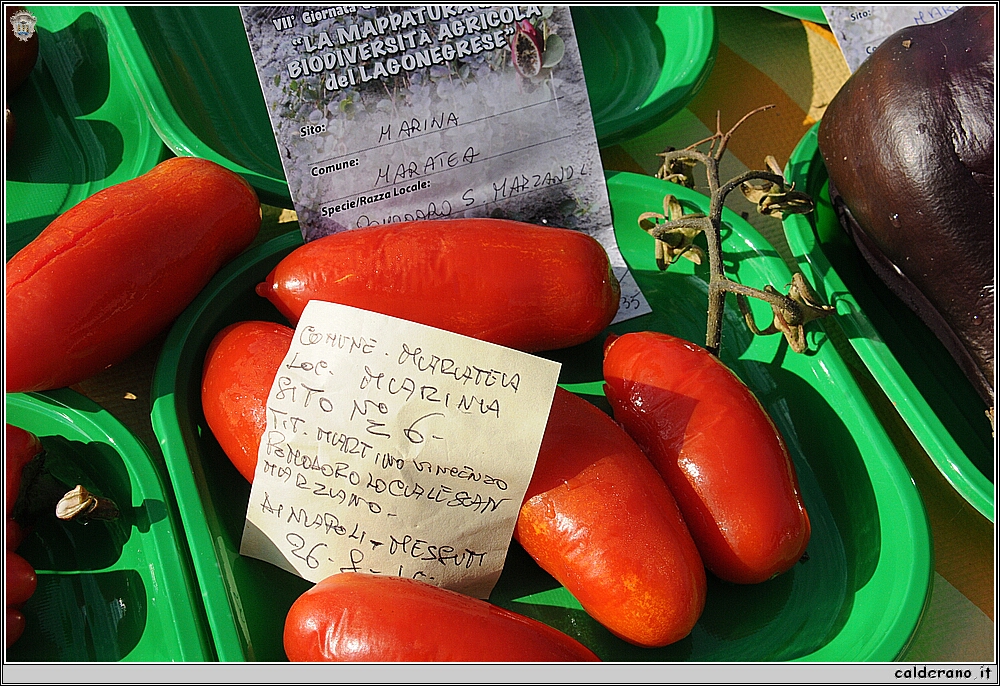 VII° Giornata
"LA MAPPATURA
BIODIVERSITÀ AGRICOLA
del LAGONEGRESE"
Sito: MARINA
Comune: MARATEA
Specie/Razza Locale:
POMODORO S. MARZANO L.
35
Sito:
COMUNE - MARATEIA
LOC. MARINA
SITO N° 6-
TIT. MARTINO VINCENZO
POMODORO LOCIALE SAN
MARZIANO-
AI NAPOLI
26-8-
calderano.it